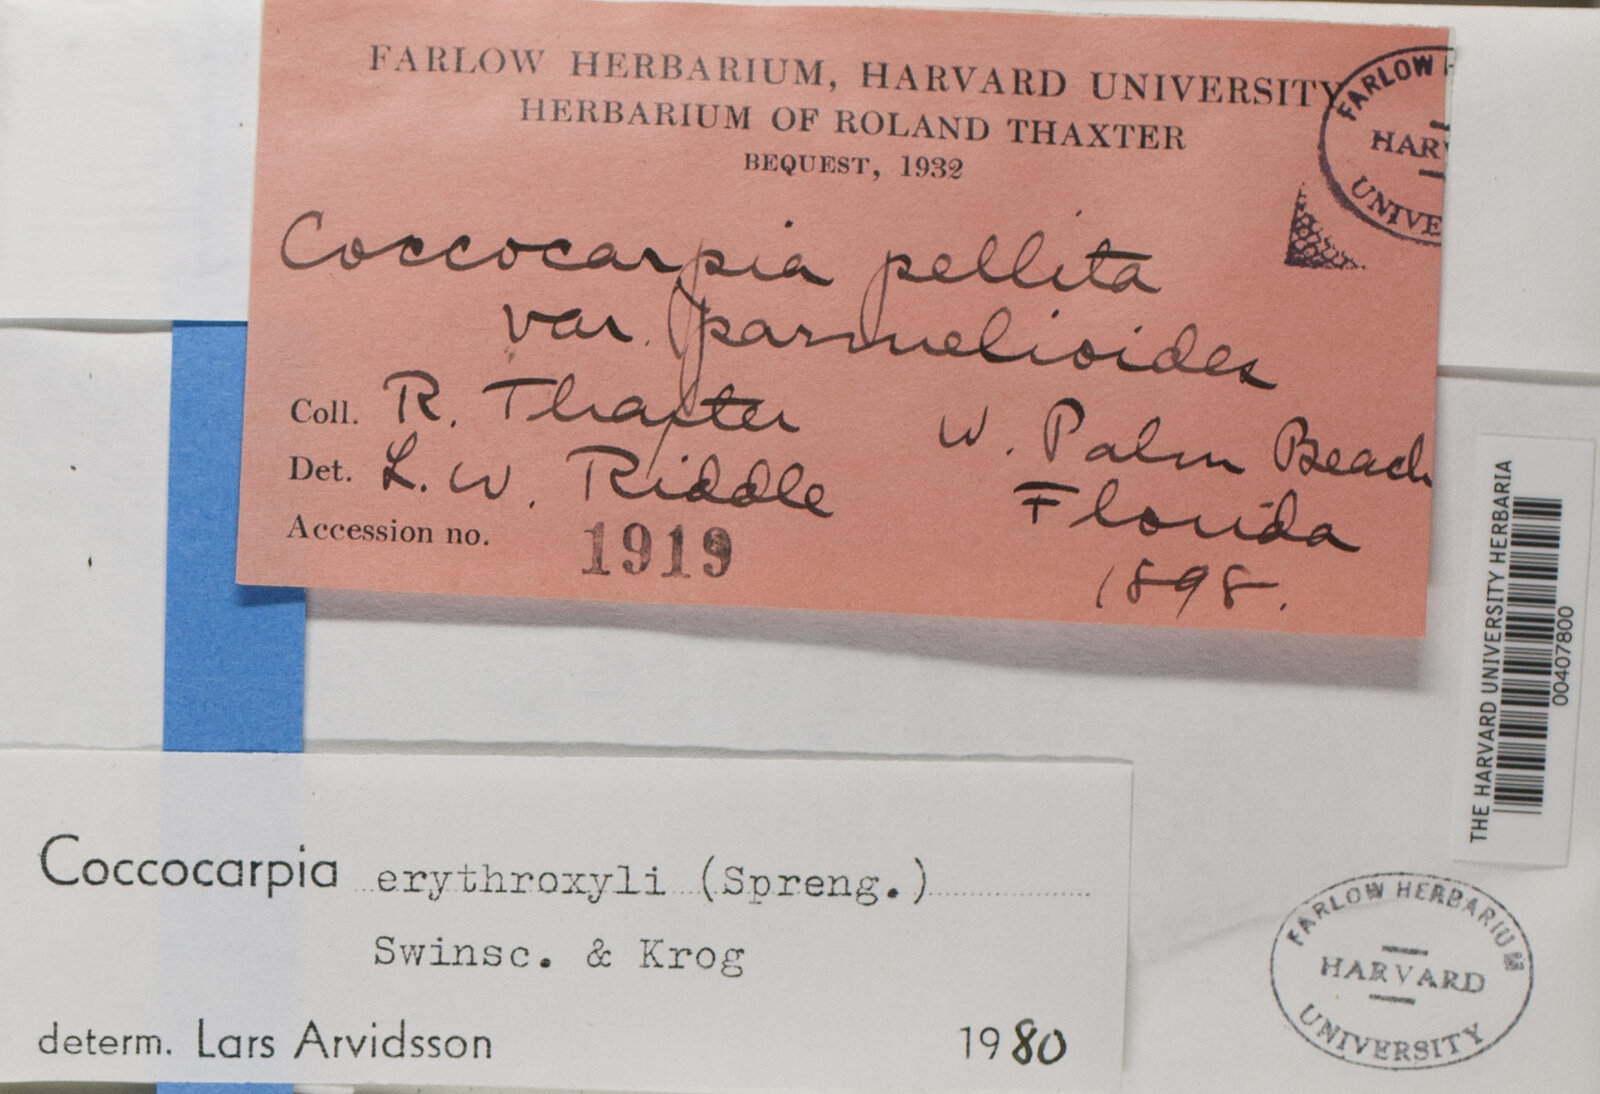 FARLOW HERBARIUM, HARVARD UNIVERSITY
HERBARIUM OF ROLAND THAXTER
BEQUEST, 1932
FARLOW H
HARV
UNIVE
Coccocarpia pellita
var. parmelioides
Coll. R. Thaxter
W. Palm Beach
Det. L. W. Riddle
Florida
Accession no. 1919
1898.
THE HARVARD UNIVERSITY HERBARIA
00407800
Coccocarpia erythroxyli (Spreng.)
Swinsc. & Krog
determ. Lars Arvidsson 1980
FARLOW HERBARIUM
HARVARD
UNIVERSITY